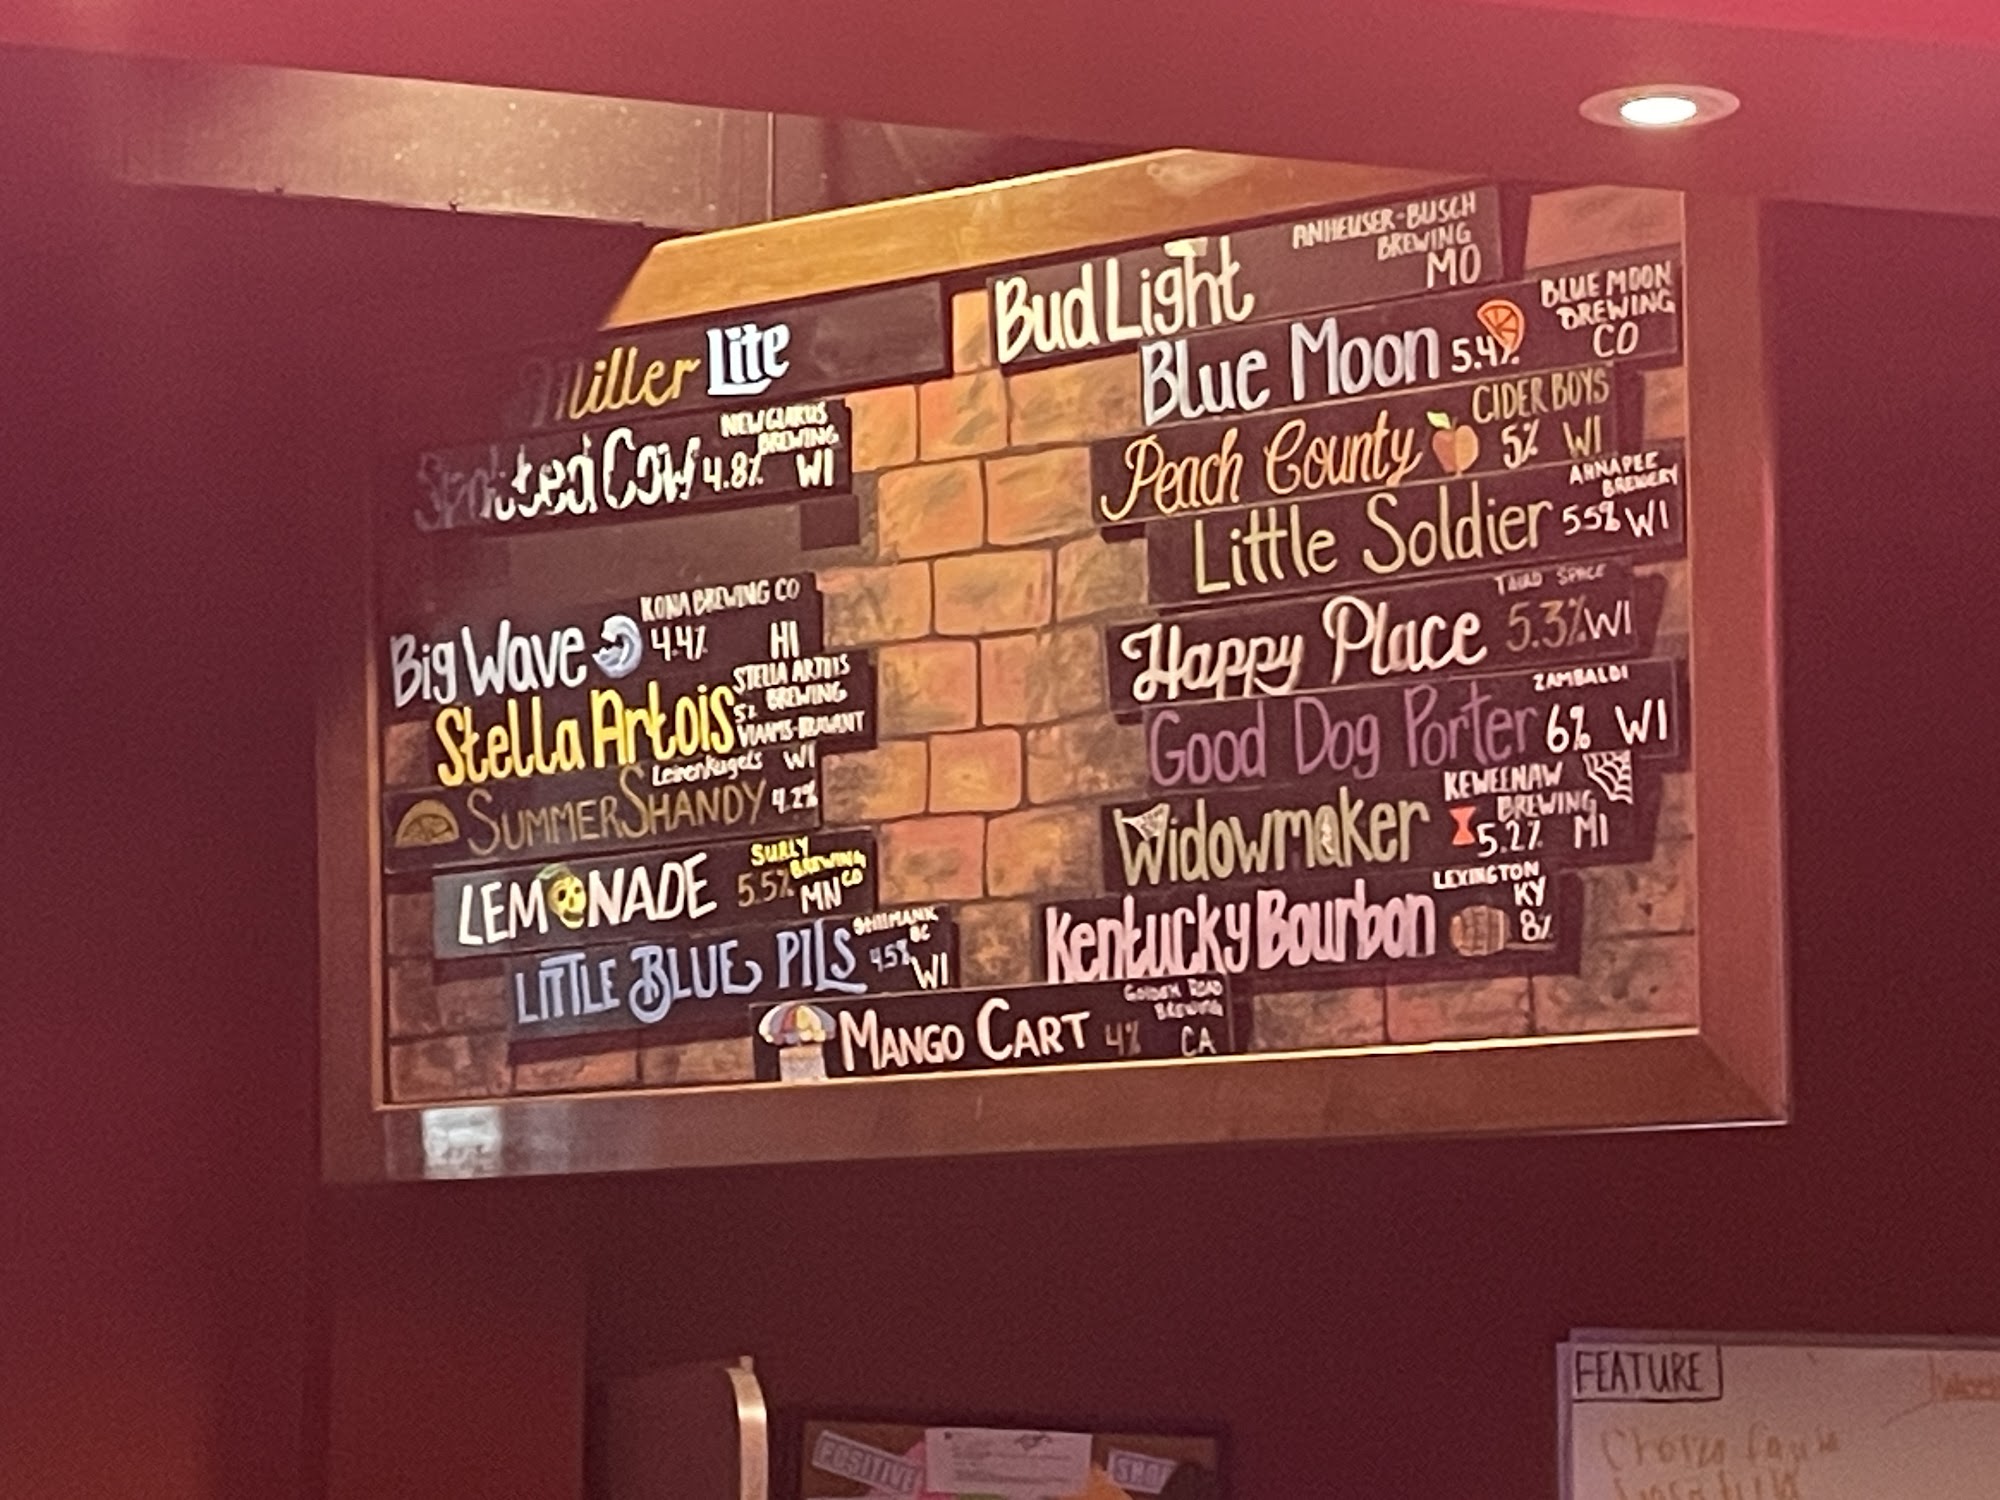 Miller Lite
Spotted Cow 4.8% NEW GLARUS BREWING WI
Big Wave 4.4% KONA BREWING CO HI
Stella Artois 5% STELLA ARTOIS BREWING
Leinenkugels WI
SUMMER SHANDY 4.2%
LEMONADE 5.5% SURLY BREWING CO MN
LITTLE BLUE PILS 4.5% STILLMANK BC WI
MANGO CART 4% GOLDEN ROAD BREWING CA
Bud Light ANHEUSER-BUSCH BREWING MO
Blue Moon 5.4% BLUE MOON BREWING CO
Peach County CIDER BOYS 5% WI
Little Soldier AHNAPEE BREWERY 5.5% WI
Happy Place THIRD SPACE 5.3% WI
Good Dog Porter ZAMBALDI 6% WI
Widowmaker KEWEENAW BREWING 5.2% MI
Kentucky Bourbon LEXINGTON KY 8%
FEATURE
POSITIVE